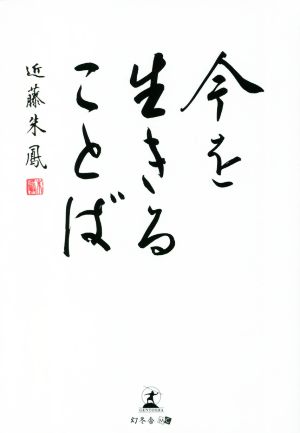 今を
生きる
ことば
近藤朱鳳
GENTOSHA
幻冬舎